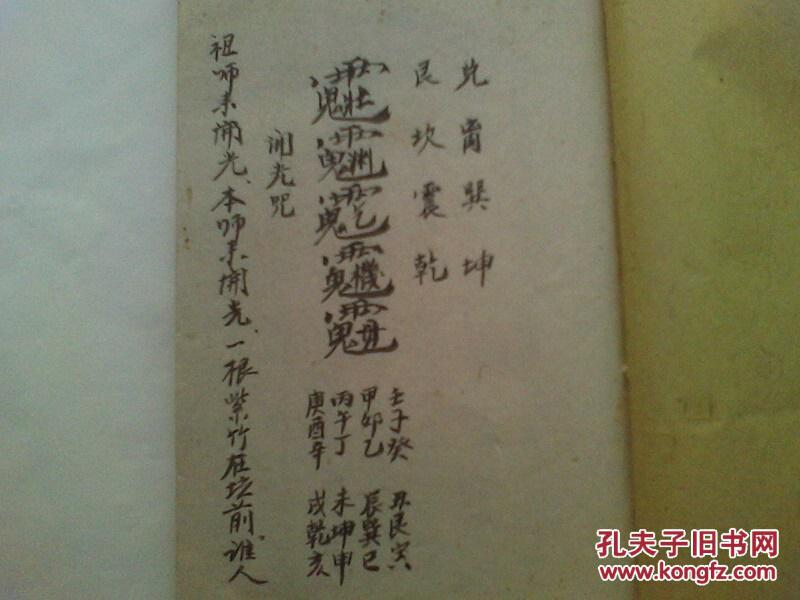 兑离巽坤
艮坎震乾
壬子癸 丑艮寅
甲卯乙 辰巽巳
丙午丁 未坤申
庚酉辛 戌乾亥
開光咒
祖师来開光、本师来開光、一根紫竹在坟前、谁人
孔夫子旧书网
www.kongfz.com